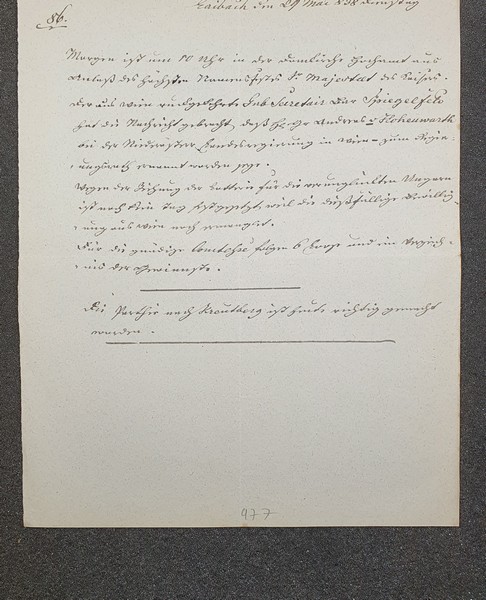 Laibach den 29 Mai 838 Dienstag
86.
Morgen ist um 10 Uhr in der Domkirche Hochamt aus
Anlaß des höchsten Namensfestes Sr Majestaet des Kaisers.
Der aus Wien rückgekehrte Gub. Secretair Bar Spiegelfeld
hat die Nachricht gebracht, daß Hr Gr Andreas v Hohenwarth
bei der Niederöster Landesregierung in Wien zum Regier-
ungsrath ernannt worden seye.
Wegen der Ziehung der Lotterie für die verunglückten Ungarn
ist noch kein Tag festgesetzt, weil die dießfällige Bewillig-
ung aus Wien noch ermangelt.
Für die gnädige folgen 6 Lose und ein Verzeich-
niß der Gewinnste.
Die Parthie nach Kreutberg ist heute richtig gemacht
worden.
977